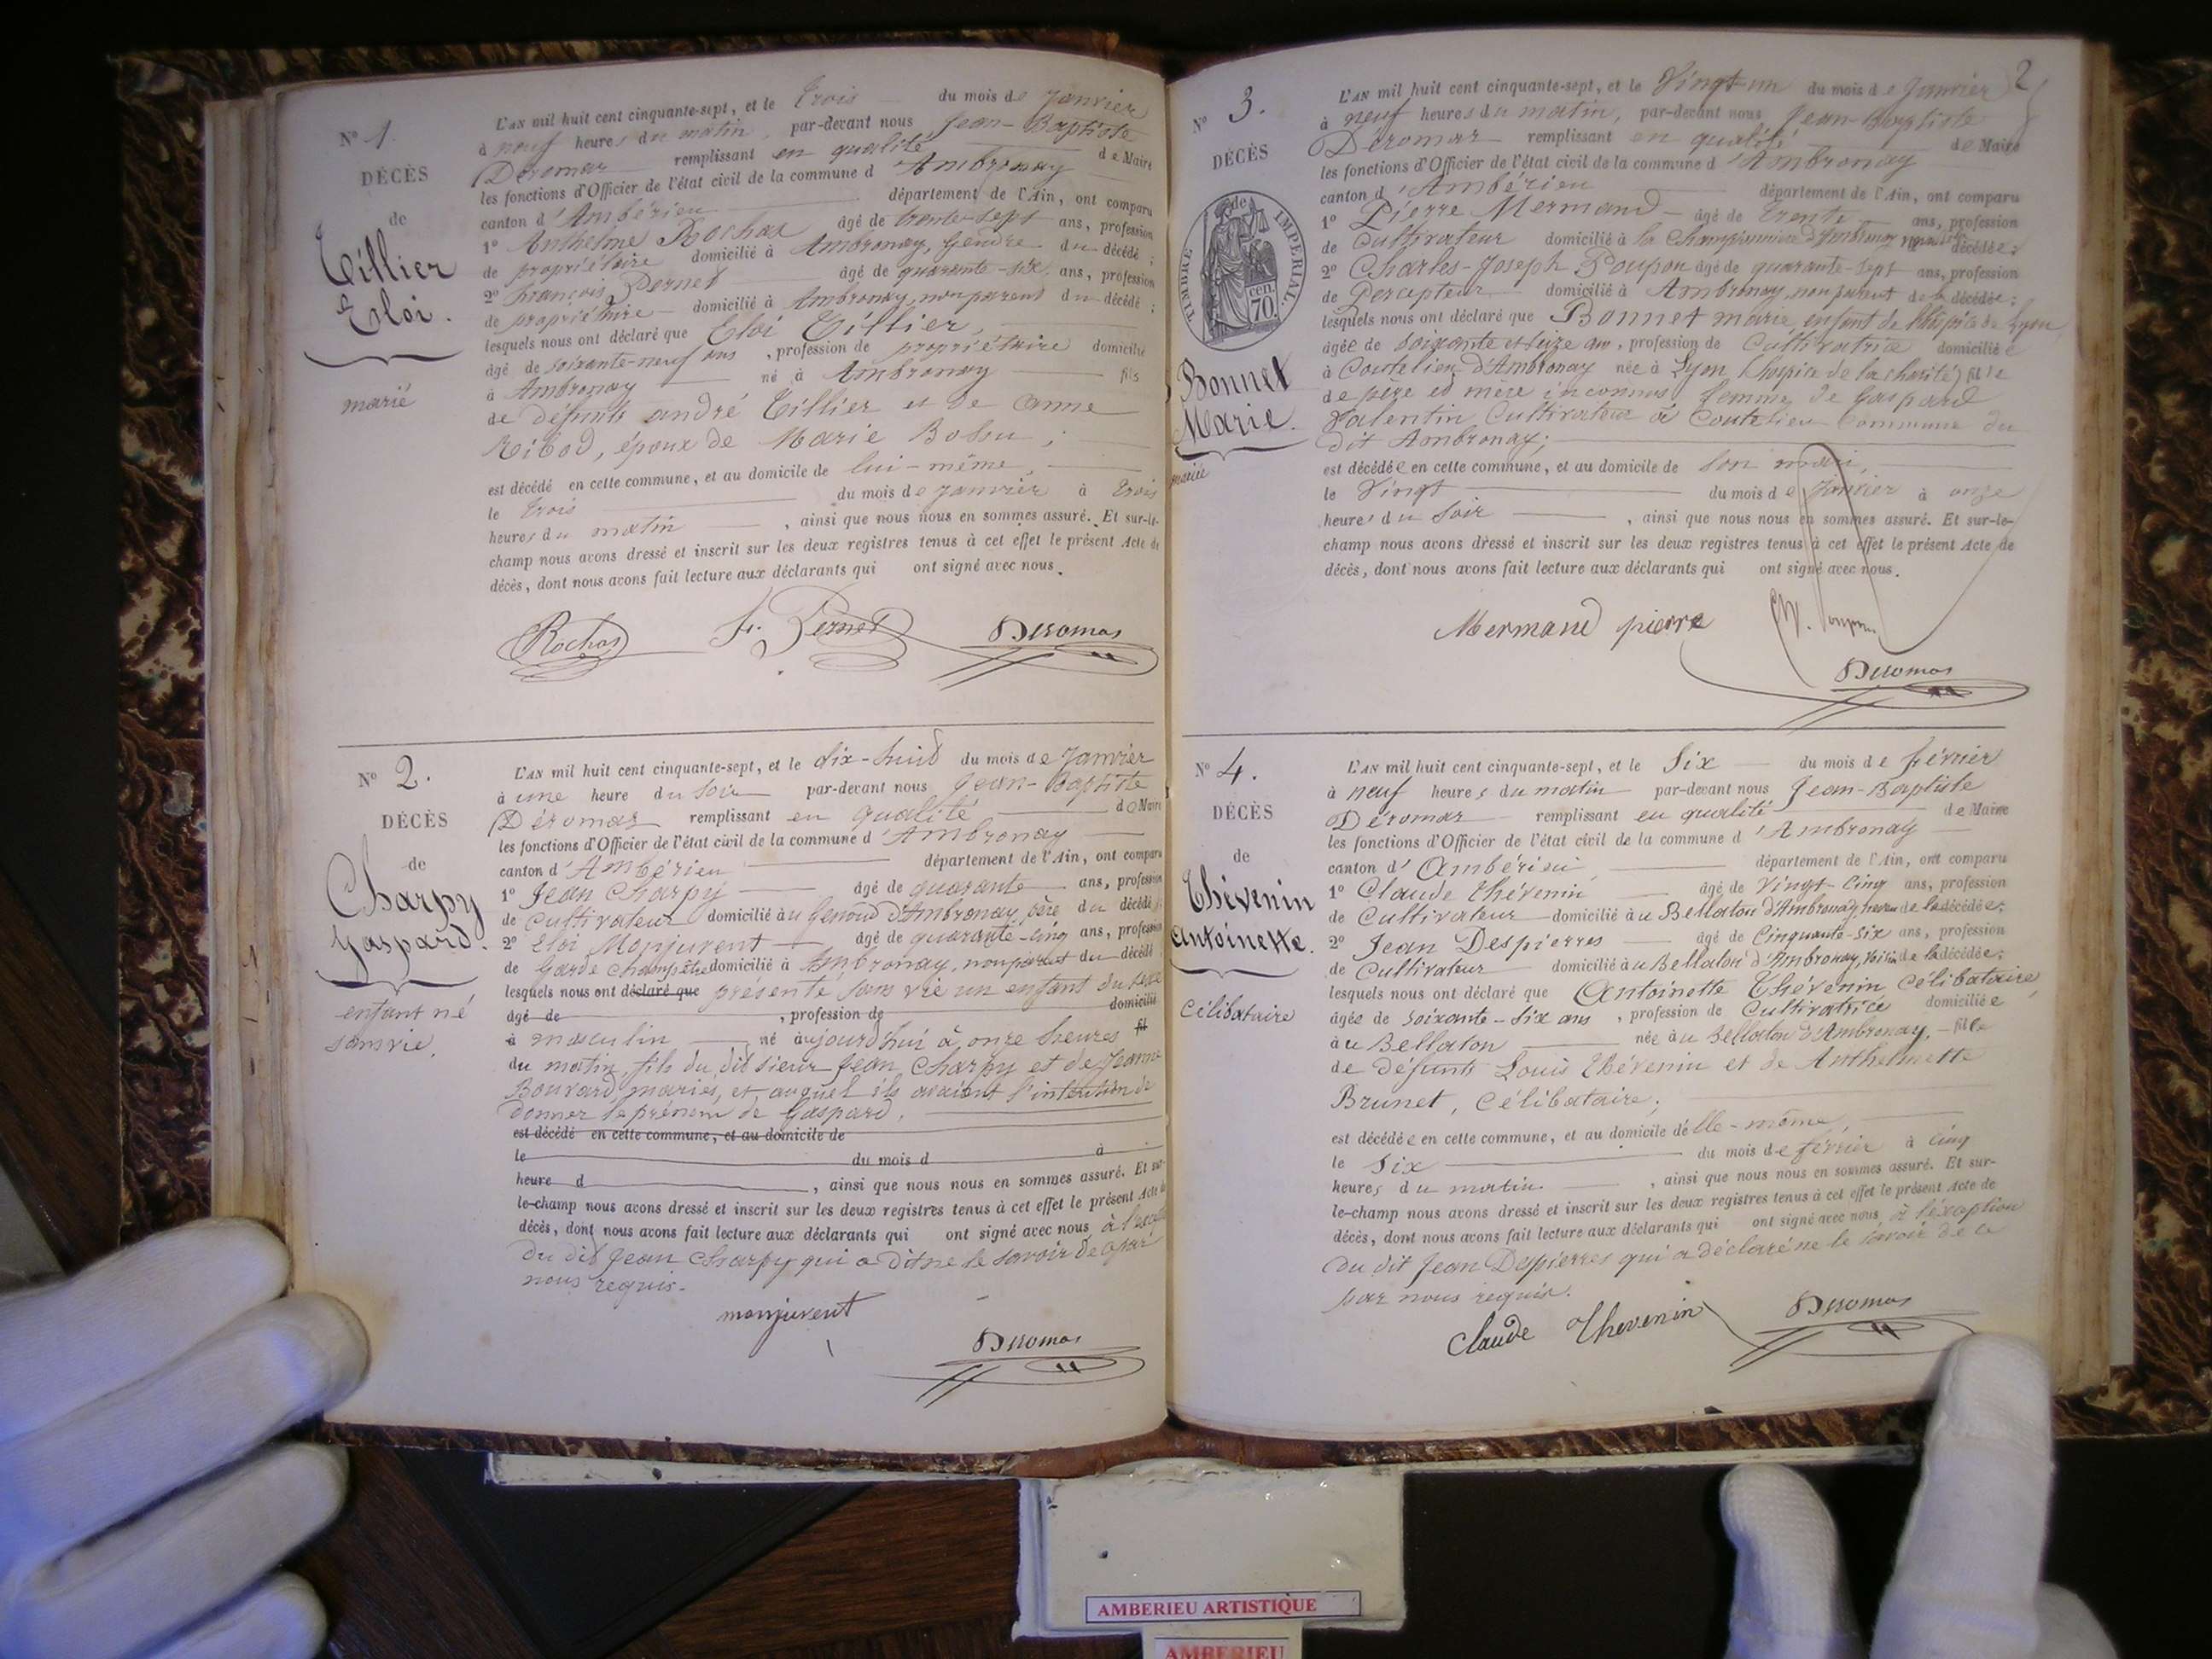 N° 1.
DÉCÈS
de
Tillier
Eloi.
marié
L'AN mil huit cent cinquante-sept, et le trois du mois de Janvier
à neuf heures du matin, par-devant nous Jean-Baptiste
Déromas remplissant en qualité de Maire
les fonctions d'Officier de l'état civil de la commune d'Ambronay
canton d'Ambérieu département de l'Ain, ont comparu
1° Anthelme Rochas âgé de trente-sept ans, profession
de propriétaire domicilié à Ambronay, Gendre du décédé;
2° François Pernet âgé de quarante-six ans, profession
de propriétaire domicilié à Ambronay, non parent du décédé;
lesquels nous ont déclaré que Eloi Tillier,
âgé de soixante-neuf ans, profession de propriétaire domicilié
à Ambronay né à Ambronay fils
de défunts andré Tillier et de anne
Ribod, époux de Marie Bossu;
est décédé en cette commune, et au domicile de lui-même,
le trois du mois de janvier à trois
heures du matin, ainsi que nous nous en sommes assuré. Et sur-le-
champ nous avons dressé et inscrit sur les deux registres tenus à cet effet le présent Acte de
décès, dont nous avons fait lecture aux déclarants qui ont signé avec nous.
Rochas F. Pernet Déromas
N° 2.
DÉCÈS
de
Charpy
Gaspard.
enfant né
sans vie.
L'AN mil huit cent cinquante-sept, et le dix-huit du mois de Janvier
à une heure du soir par-devant nous Jean-Baptiste
Déromas remplissant en qualité de Maire
les fonctions d'Officier de l'état civil de la commune d'Ambronay
canton d'Ambérieu département de l'Ain, ont comparu
1° Jean Charpy âgé de quarante ans, profession
de Cultivateur domicilié au Genoud d'Ambronay, père du décédé;
2° Eloi Monjuvent âgé de quarante-cinq ans, profession
de Garde champêtre domicilié à Ambronay, non parent du décédé
lesquels nous ont déclaré que présenté sans vie un enfant du sexe
âgé de , profession de domicilié
à masculin né aujourd'hui à onze heures fil
du matin, fils du dit sieur Jean Charpy et de Jeanne
Bouvard, mariés, et auquel ils avaient l'intention de
donner le prénom de Gaspard.
est décédé en cette commune, et au domicile de
le du mois d à
heure d , ainsi que nous nous en sommes assuré. Et sur-
le-champ nous avons dressé et inscrit sur les deux registres tenus à cet effet le présent Acte de
décès, dont nous avons fait lecture aux déclarants qui ont signé avec nous à
du dit Jean Charpy qui a dit ne le savoir de ce par
nous requis.
monjuvent
Déromas
2
N° 3.
DÉCÈS
TIMBRE IMPÉRIAL
de
cen. 70.
Bonnet
Marie.
mariée
L'AN mil huit cent cinquante-sept, et le Vingt-un du mois de Janvier
à neuf heures du matin, par-devant nous Jean-Baptiste
Déromas remplissant en qualité de Maire
les fonctions d'Officier de l'état civil de la commune d'Ambronay
canton d'Ambérieu département de l'Ain, ont comparu
1° Pierre Mermand âgé de trente ans, profession
de Cultivateur domicilié à la Championnière d'Ambronay décédée;
2° Charles-Joseph Poupon âgé de quarante-sept ans, profession
de Percepteur domicilié à Ambronay, non parent de la décédée;
lesquels nous ont déclaré que Bonnet marie, enfant de l'hospice de Lyon
âgée de soixante et seize ans, profession de Cultivatrice domiciliée
à Coutelieu d'Ambronay née à Lyon (hospice de la charité) fille
de père et mère inconnus, femme de Gaspard
Valentin Cultivateur à Coutelieu Commune du
dit Ambronay;
est décédée en cette commune, et au domicile de son mari,
le Vingt du mois de Janvier à onze
heures du soir, ainsi que nous nous en sommes assuré. Et sur-le-
champ nous avons dressé et inscrit sur les deux registres tenus à cet effet le présent Acte de
décès, dont nous avons fait lecture aux déclarants qui ont signé avec nous.
Mermand pierre Poupon
Déromas
N° 4.
DÉCÈS
de
Thévenin
Antoinette.
Célibataire
L'AN mil huit cent cinquante-sept, et le Six du mois de février
à neuf heures du matin par-devant nous Jean-Baptiste
Déromas remplissant en qualité de Maire
les fonctions d'Officier de l'état civil de la commune d'Ambronay
canton d'Ambérieu département de l'Ain, ont comparu
1° Claude Thévenin âgé de Vingt-cinq ans, profession
de Cultivateur domicilié au Bellaton d'Ambronay, neveu de la décédée;
2° Jean Despierres âgé de Cinquante-six ans, profession
de Cultivateur domicilié au Bellaton d'Ambronay, voisin de la décédée;
lesquels nous ont déclaré que Antoinette Thévenin Célibataire,
âgée de soixante-six ans, profession de Cultivatrice domiciliée
au Bellaton née au Bellaton d'Ambronay, fille
de défunts Louis Thévenin et de Anthelmette
Brunet, Célibataire;
est décédée en cette commune, et au domicile d'elle-même,
le six du mois de février à cinq
heures du matin, ainsi que nous nous en sommes assuré. Et sur-
le-champ nous avons dressé et inscrit sur les deux registres tenus à cet effet le présent Acte de
décès, dont nous avons fait lecture aux déclarants qui ont signé avec nous, à l'exception
du dit Jean Despierres qui a déclaré ne le savoir de ce
par nous requis.
Claude Thevenin Déromas
AMBERIEU ARTISTIQUE
AMBERIEU